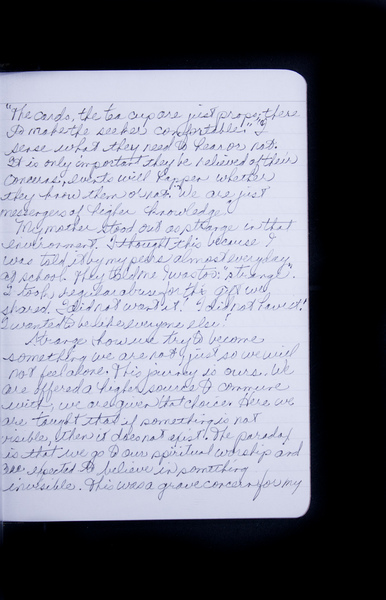 "The cards, the tea cup are just props, there
to make the seeker comfortable." "I
sense what they need to hear or not.
It is only important they be relieved of their
concerns, events will happen whether
they know them or not." "We are just
messengers of higher knowledge."
My mother stood out as strange in that
environment. I thought this because I
was told it by my peers almost everyday
at school. They told me I was too "strange".
I took regular abuse for the gift we
shared. I did not want it! I did not have it!
I wanted to be like everyone else!
Strange how we try to become
something we are not, just so we will
not feel alone. This journey is ours. We
are offered a higher source to commune
with, we are given that choice. Here we
are taught that if something is not
visible, then it does not exist. The paradox
is that we go to our spiritual worship and
are expected to believe in something
invisible. This was a grave concern for my